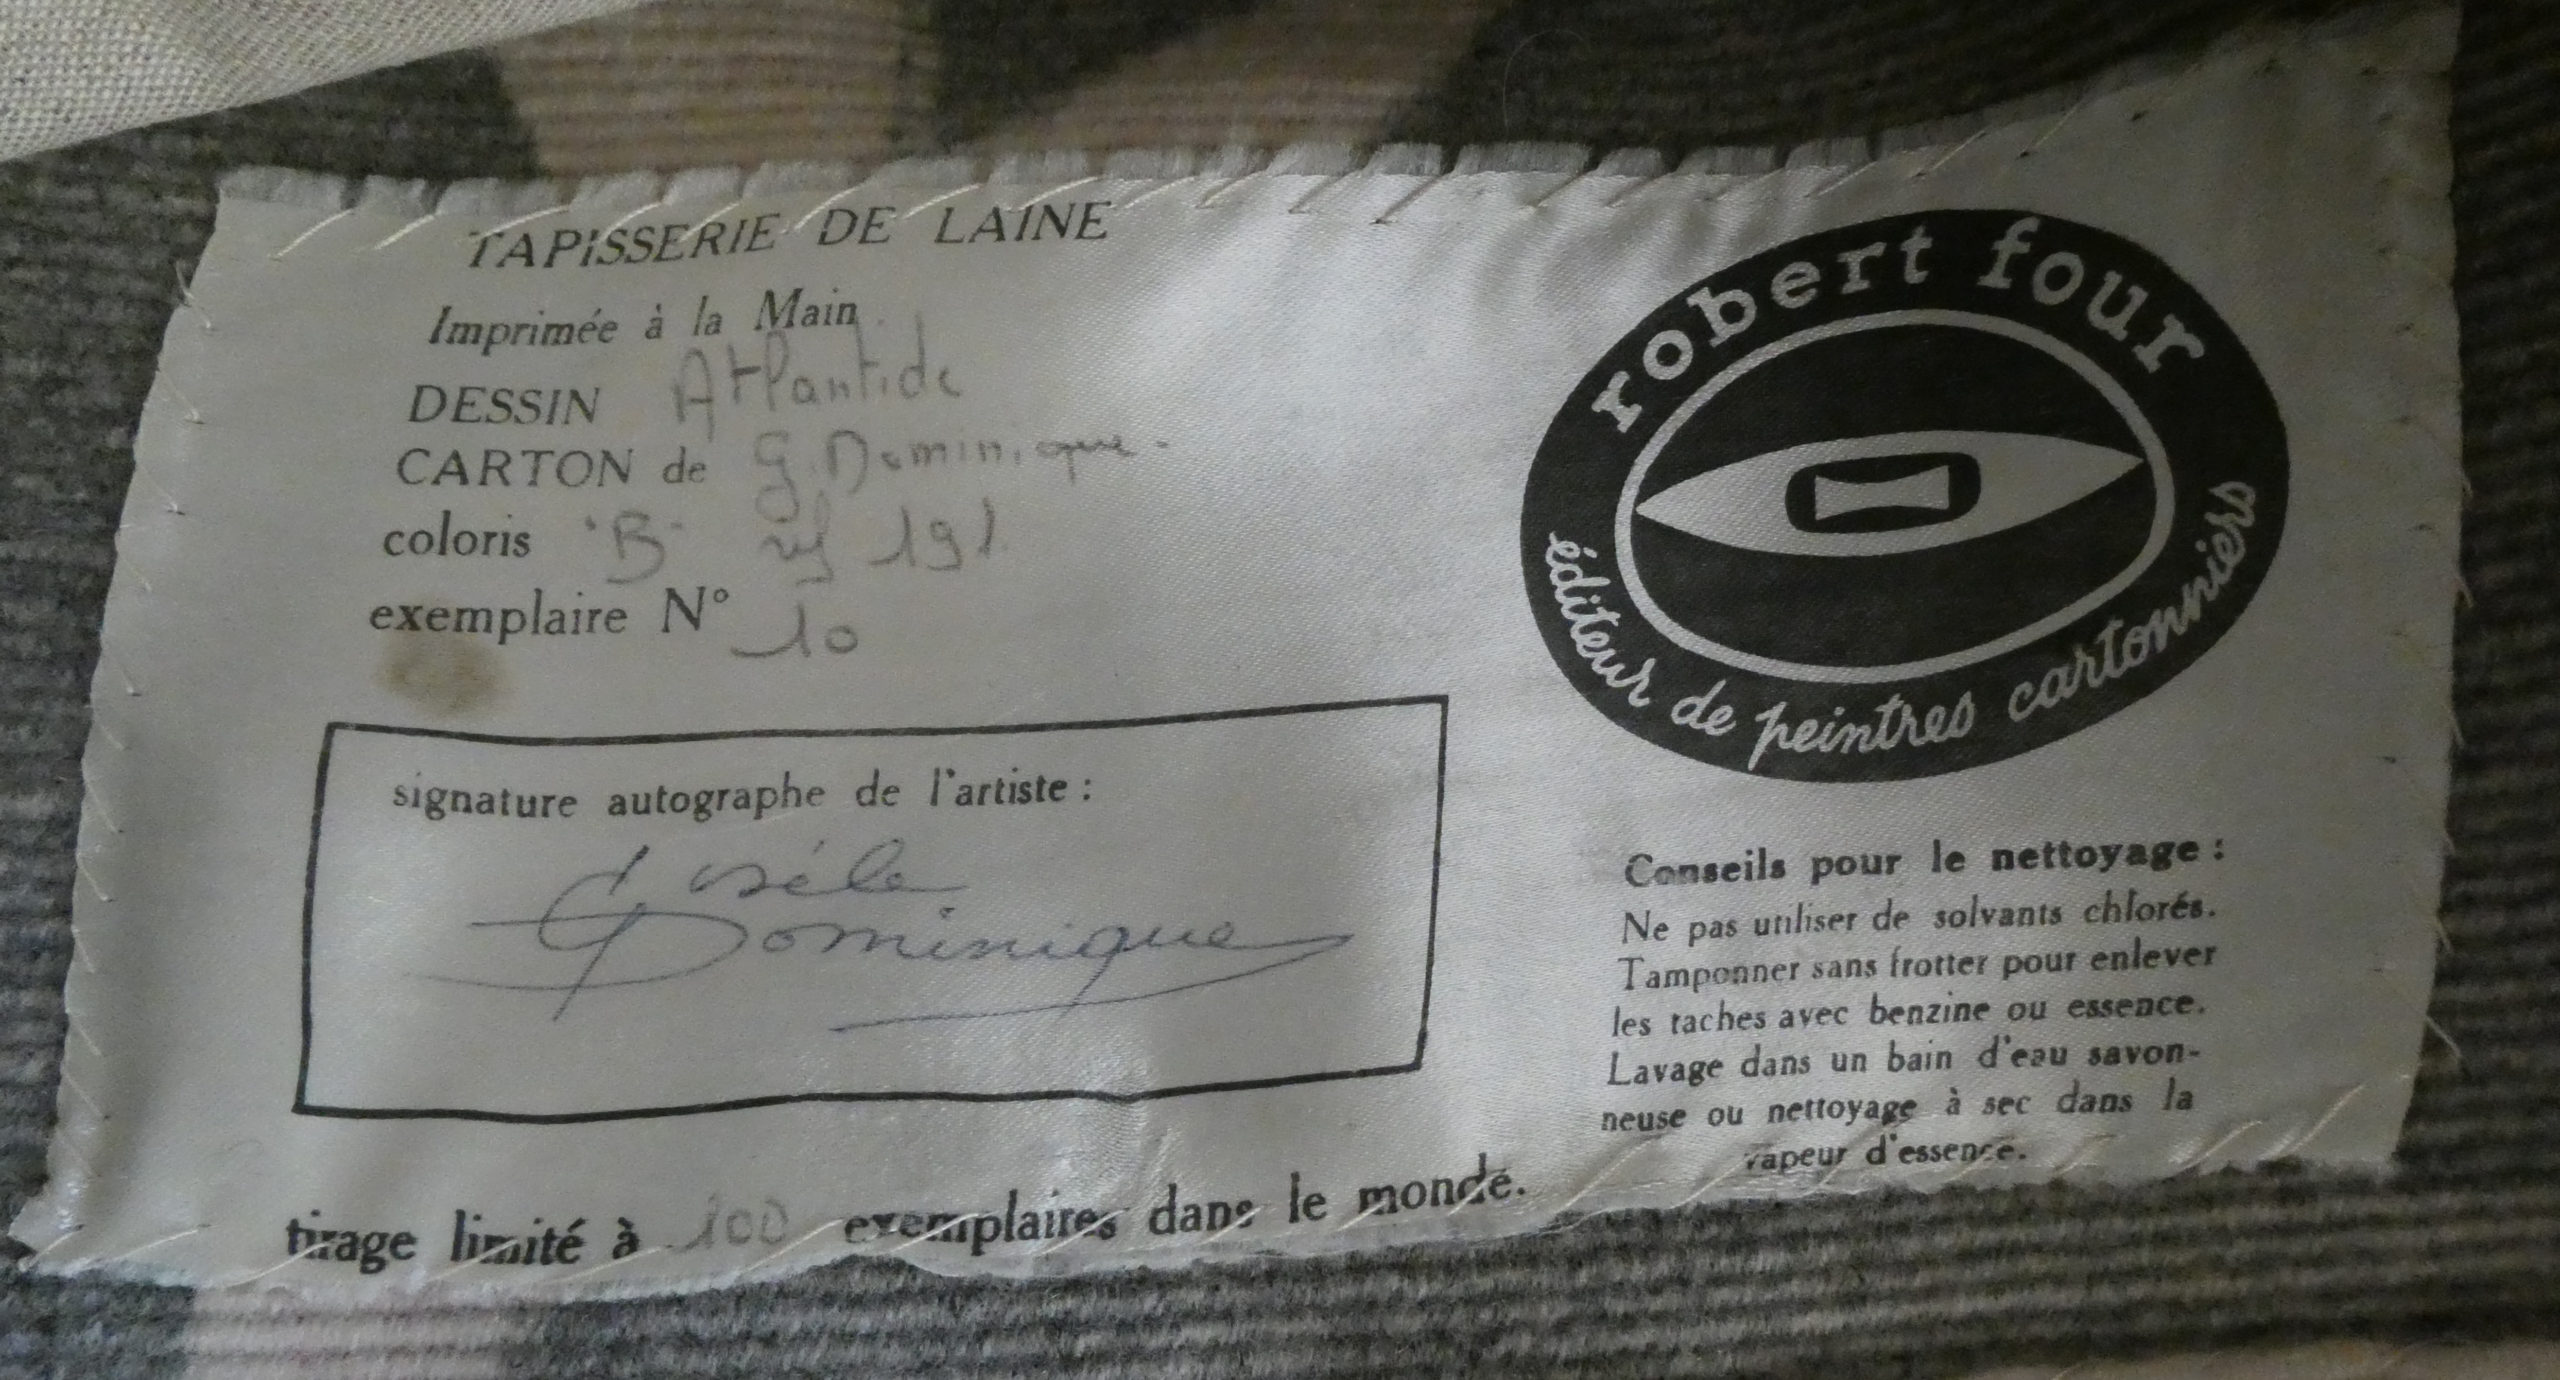 TAPISSERIE DE LAINE
Imprimée à la Main
DESSIN Atlantide
CARTON de G. Dominique.
coloris "B" ref 191
exemplaire N° 10
signature autographe de l'artiste :
Gisèle
Dominique
tirage limité à 100 exemplaires dans le monde.
robert four
éditeur de peintres cartonniers
Conseils pour le nettoyage :
Ne pas utiliser de solvants chlorés.
Tamponner sans frotter pour enlever
les taches avec benzine ou essence.
Lavage dans un bain d'eau savon-
neuse ou nettoyage à sec dans la
vapeur d'essence.